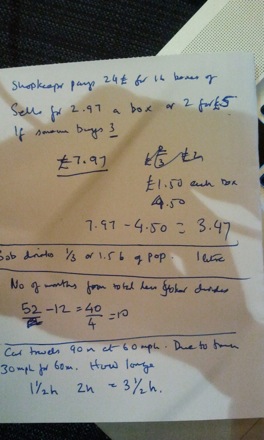 Shopkeeper pays 24£ for 16 boxes of
Sells for 2.97 a box or 2 for £5
If someone buys 3
£7.97
£1.50 each box
4.50
7.97 - 4.50 = 3.47
Bob drinks 1/3 or 1.5 l of pop. 1 litre
No of months from total
52 - 12 = 40/4 = 10
Car travels 90m at 60mph. Due to
30mph for 60m. How long
1½h 2h = 3½h.